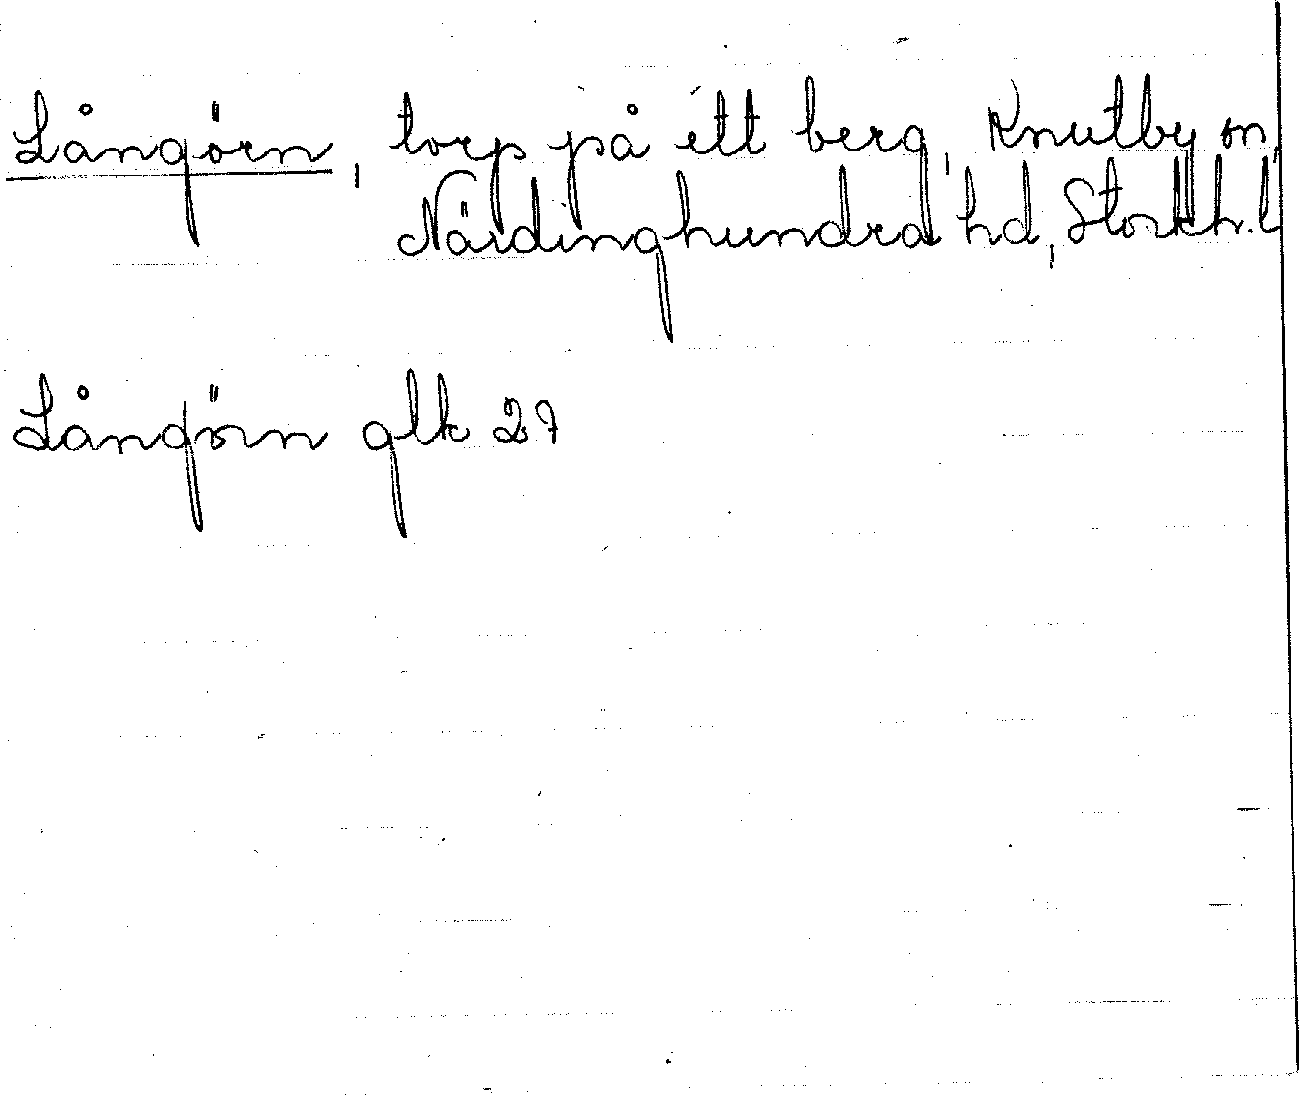 Långörn, torp på ett berg, Knutby sn,
Närdinghundra hd, Stockh. l
Långörn glk 27